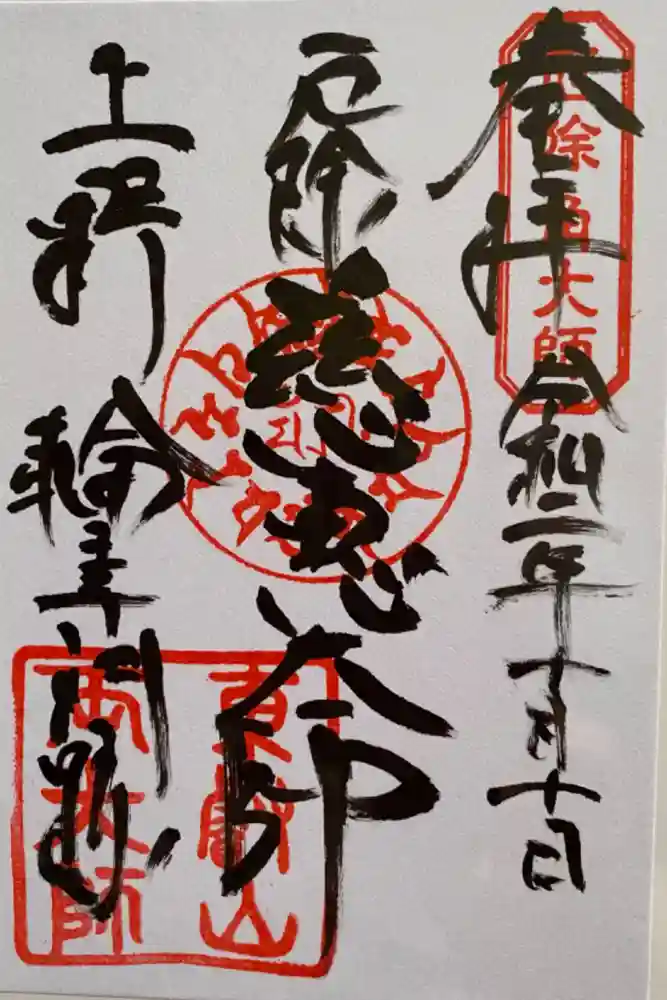 奉拝 令和二年十月十日
厄除 慈恵大師
上野 輪王寺門跡
厄除角大師
東叡山
両大師